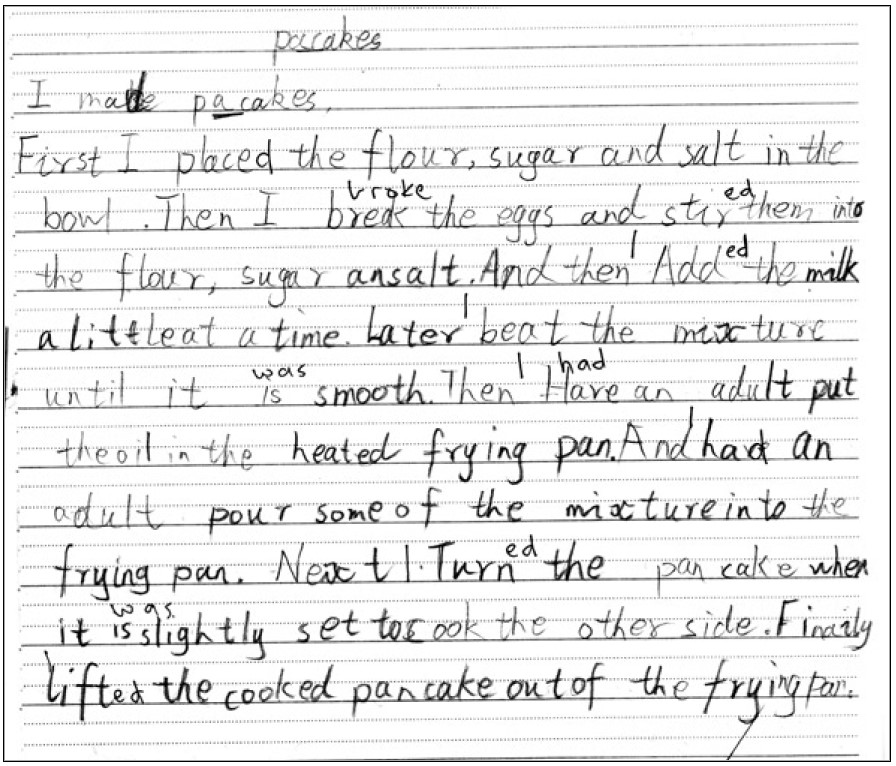 pacakes
I made pacakes.
First I placed the flour, sugar and salt in the
broke ed
bowl. Then I break the eggs and stir them into
I ed
the flour, sugar ansalt. And then Add the milk
I
a little at a time. Later beat the mixture
was I had
until it is smooth. Then Have an adult put
I
the oil in the heated frying pan. And had an
adult pour some of the mixture into the
ed
frying pan. Next I. Turn the pan cake when
was
it is slightly set to cook the other side. Finaily
lifted the cooked pancake out of the frying pan.